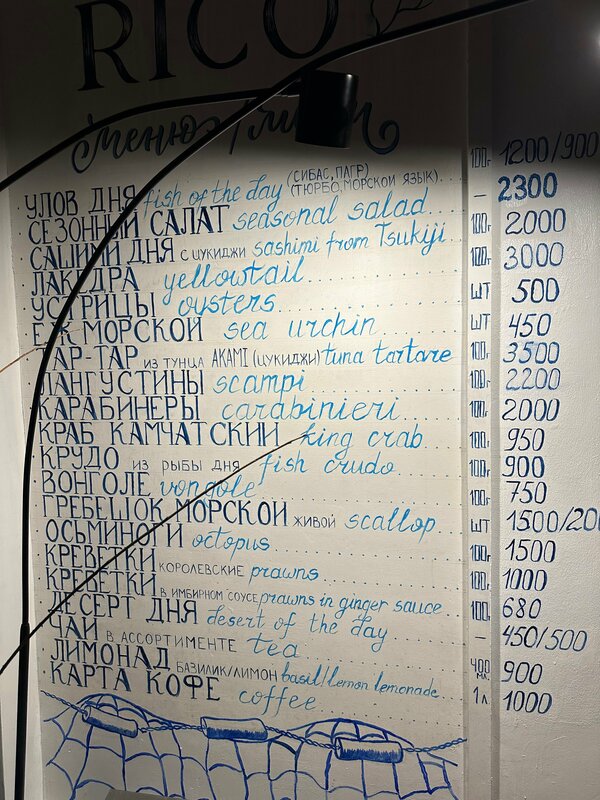 RICO
меню
УЛОВ ДНЯ fish of the day (СИБАС, ПАГР) (ТЮРБО, МОРСКОЙ ЯЗЫК) 100г 1200/900
СЕЗОННЫЙ САЛАТ seasonal salad — 2300
САШИМИ ДНЯ С ЦУКИДЖИ sashimi from Tsukiji 100г 2000
ЛАКЕДРА yellowtail 100г 3000
УСТРИЦЫ oysters ШТ 500
ЕЖ МОРСКОЙ sea urchin ШТ 450
ТАР-ТАР ИЗ ТУНЦА AKAMI (ЦУКИДЖИ) tuna tartare 100г 3500
ЛАНГУСТИНЫ scampi 100г 2200
КАРАБИНЕРЫ carabinieri 100г 2000
КРАБ КАМЧАТСКИЙ king crab 100г 950
КРУДО ИЗ РЫБЫ ДНЯ fish crudo 100г 900
ВОНГОЛЕ vongole 100г 750
ГРЕБЕШОК МОРСКОЙ ЖИВОЙ scallop ШТ 1500/
ОСЬМИНОГИ octopus 100г 1500
КРЕВЕТКИ КОРОЛЕВСКИЕ prawns 100г 1000
КРЕВЕТКИ В ИМБИРНОМ СОУСЕ prawns in ginger sauce 100г 680
ДЕСЕРТ ДНЯ desert of the day — 450/500
ЧАЙ В АССОРТИМЕНТЕ tea 400 МЛ. 900
ЛИМОНАД БАЗИЛИК/ЛИМОН basil/lemon lemonade 1л 1000
КАРТА КОФЕ coffee